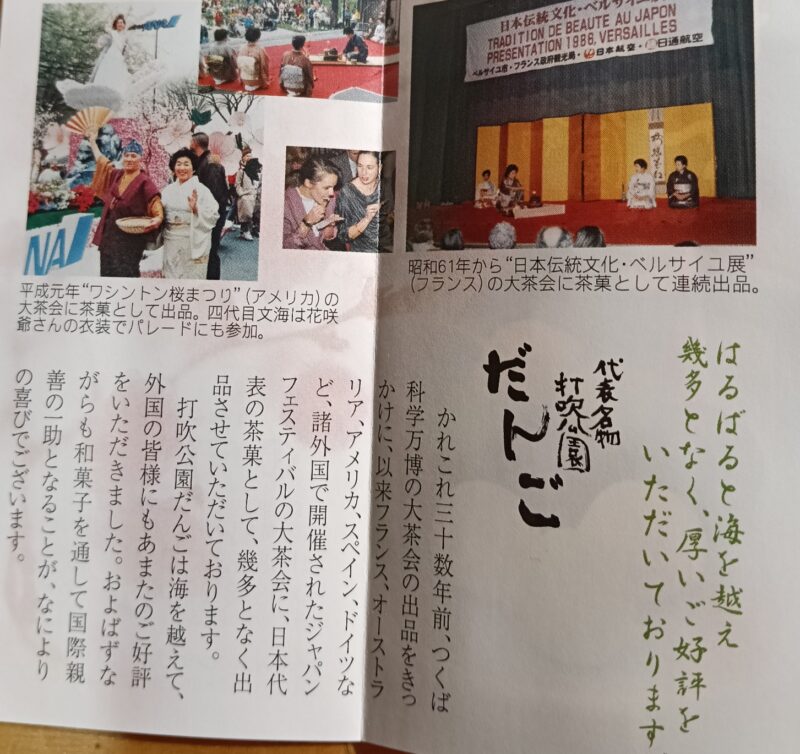 日本伝統文化・ベルサイユ展
TRADITION DE BEAUTE AU JAPON
PRESENTATION 1986, VERSAILLES
ベルサイユ市・フランス政府観光局・日本航空・日通航空
昭和61年から“日本伝統文化・ベルサイユ展”
(フランス)の大茶会に茶菓として連続出品。
NA
平成元年“ワシントン桜まつり”(アメリカ)の
大茶会に茶菓として出品。四代目文海は花咲
爺さんの衣装でパレードにも参加。
はるばると海を越え
幾多となく、厚いご好評を
いただいております
代表名物
打吹公園
だんご
かれこれ三十数年前、つくば
科学万博の大茶会の出品をきっ
かけに、以来フランス、オーストラ
リア、アメリカ、スペイン、ドイツな
ど、諸外国で開催されたジャパン
フェスティバルの大茶会に、日本代
表の茶菓として、幾多となく出
品させていただいております。
打吹公園だんごは海を越えて、
外国の皆様にもあまたのご好評
をいただきました。およばずな
がらも和菓子を通して国際親
善の一助となることが、なにより
の喜びでございます。